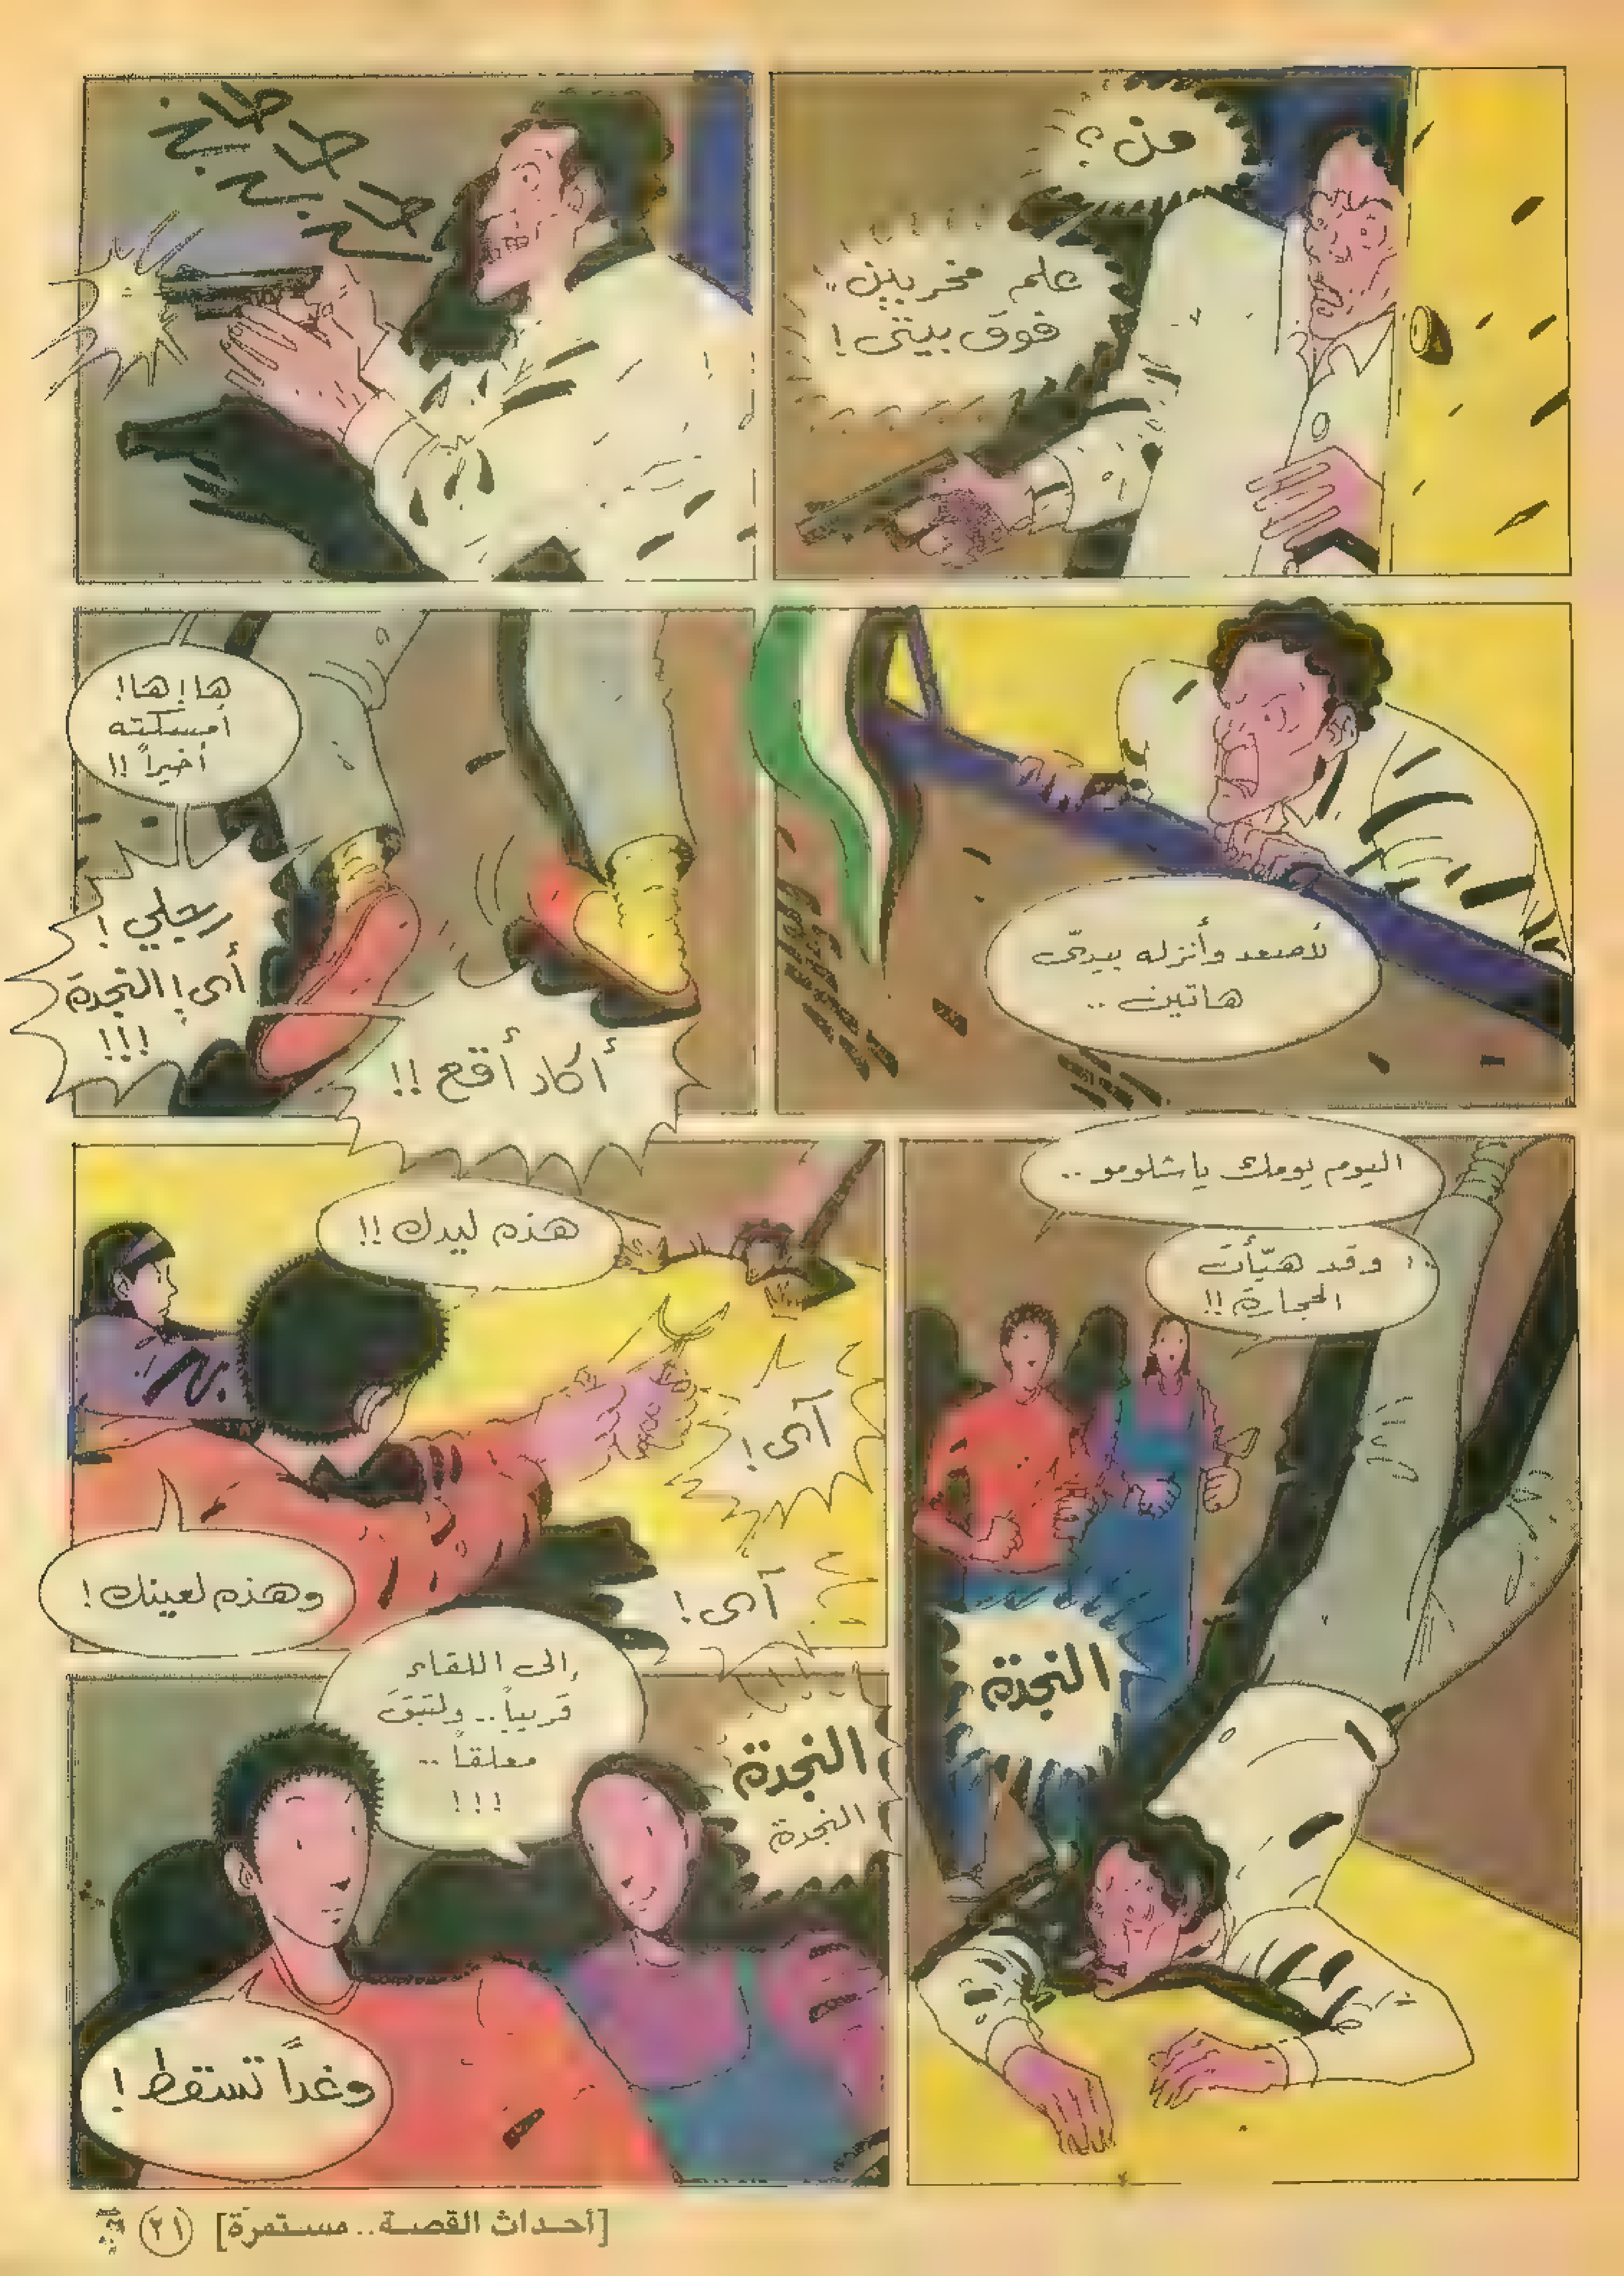 من؟
علم مخربين!!
فوق بيتي!
طاخ
طاخ
طاخ
لأصعد وأنزله بيديّ
هاتين..
ها! ها!
أمسكته
أخيراً!!
رجلي!
آي! النجدة
!!!
أكاد أقع!!
اليوم يومك يا شلومو..
.. وقد هيّأت
الحجارة!!
النجدة
هذه ليدك!!
آي!
وهذه لعينك!
آي!
إلى اللقاء
قريباً.. ولتبقَ
معلقاً..
!!!
النجدة
النجدة
وغداً تسقط!
[أحداث القصة.. مستمرة] ٢١